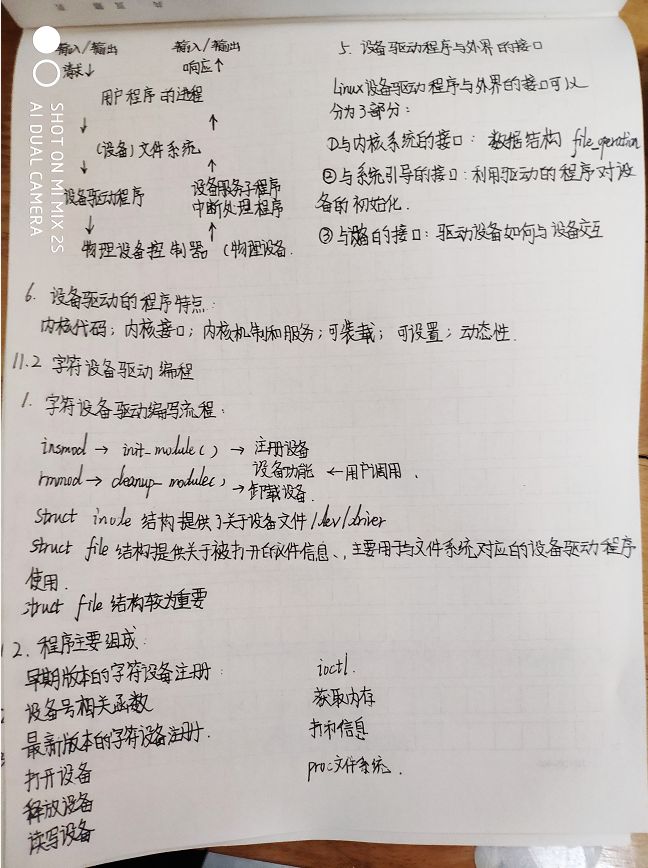 输入/输出 输入/输出
请求↓ 响应↑
用户程序的进程
↓ ↑
(设备)文件系统
↓ ↑
设备驱动程序 设备服务子程序
中断处理程序
↓ ↑
物理设备控制器 (物理设备.
5. 设备驱动程序与外界的接口
Linux设备驱动程序与外界的接口可以
分为3部分:
①与内核系统的接口: 数据结构 file_operation
②与系统引导的接口: 利用驱动的程序对设
备的初始化.
③与设备的接口: 驱动设备如何与设备交互
6. 设备驱动的程序特点:
内核代码; 内核接口; 内核机制和服务; 可装载; 可设置; 动态性.
11.2 字符设备驱动编程
1. 字符设备驱动编写流程:
insmod → init_module() → 注册设备
设备功能 ←用户调用.
rmmod → cleanup_module() → 卸载设备.
struct inode 结构提供了关于设备文件 /dev/driver
struct file 结构提供关于被打开的文件信息、,主要用于与文件系统对应的设备驱动程序
使用.
struct file 结构较为重要
2. 程序主要组成:
早期版本的字符设备注册.
设备号相关函数
最新版本的字符设备注册.
打开设备
释放设备
读写设备
ioctl.
获取内存
打印信息
proc文件系统.
SHOT ON MI MIX 2S
AI DUAL CAMERA